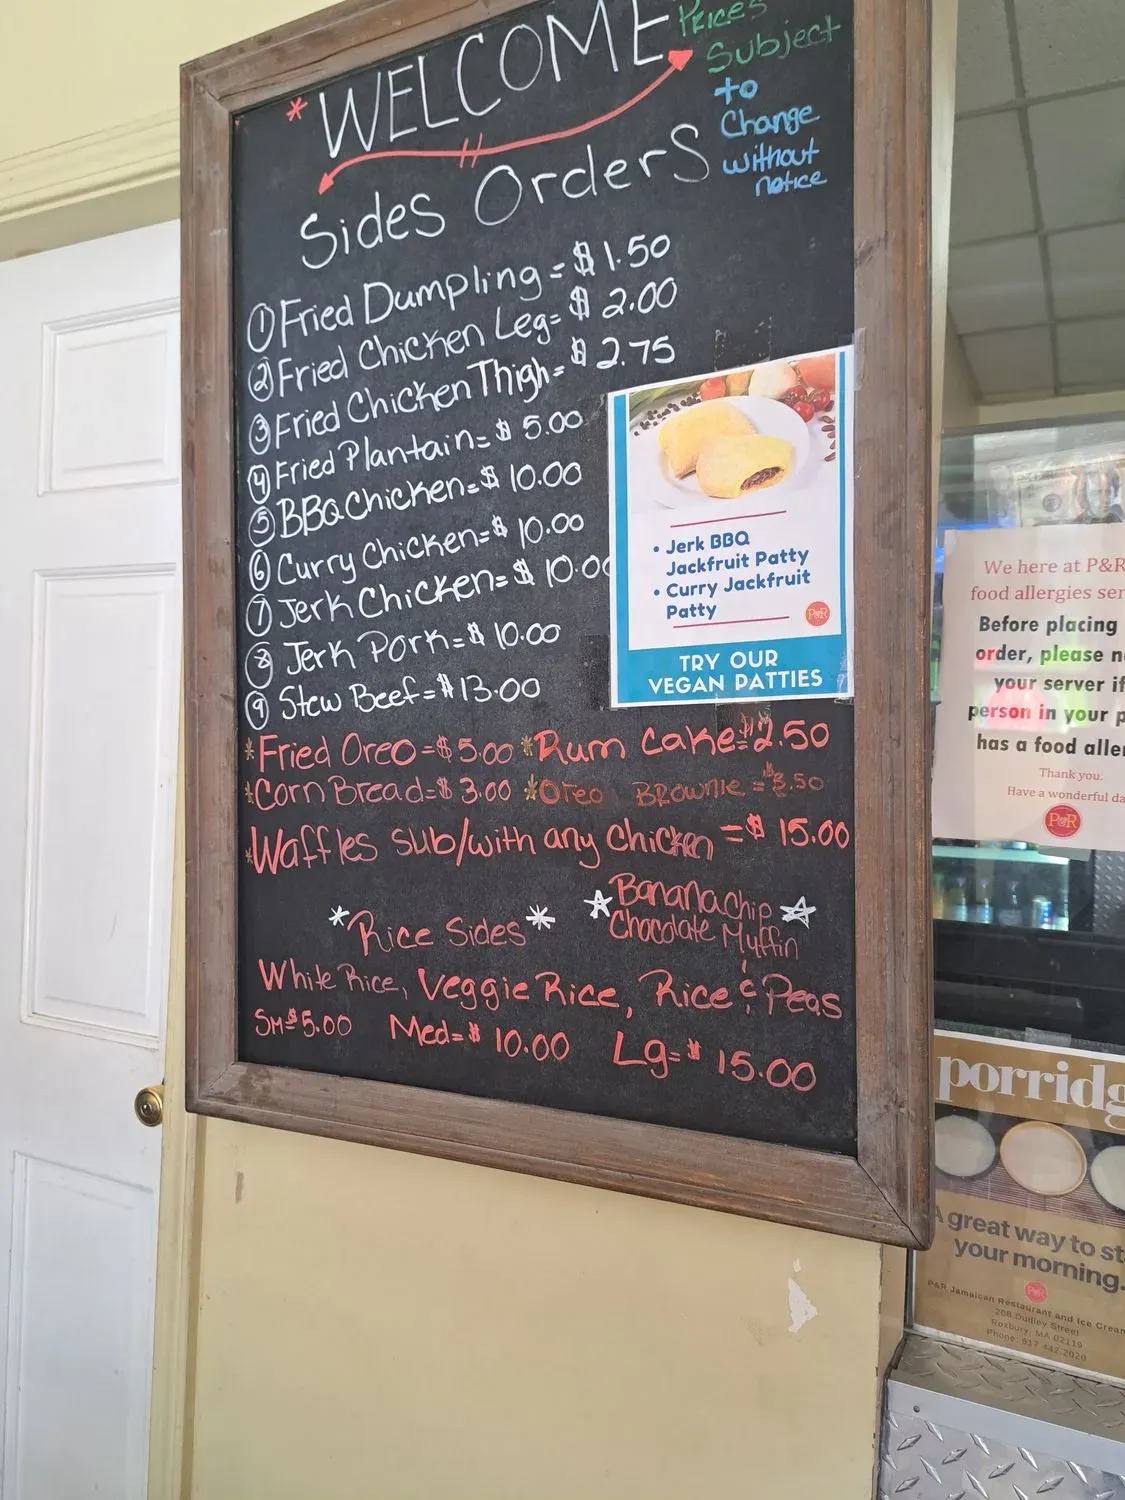 * WELCOME
Prices
Subject
to
Change
without
notice
Sides Orders
① Fried Dumpling = $ 1.50
② Fried Chicken Leg = $ 2.00
③ Fried Chicken Thigh = $ 2.75
④ Fried Plantain = $ 5.00
⑤ BBQ Chicken = $ 10.00
⑥ Curry Chicken = $ 10.00
⑦ Jerk Chicken = $ 10.00
⑧ Jerk Pork = $ 10.00
⑨ Stew Beef = $ 13.00
* Fried Oreo = $ 5.00 * Rum Cake = $ 2.50
* Corn Bread = $ 3.00 * Oreo Brownie = $ 3.50
* Waffles sub/with any Chicken = $ 15.00
* Rice Sides *
☆ Banana chip ☆
Chocolate Muffin
White Rice, Veggie Rice, Rice & Peas
Sm = $ 5.00 Med = $ 10.00 Lg = $ 15.00
• Jerk BBQ
Jackfruit Patty
• Curry Jackfruit
Patty
P&R
TRY OUR
VEGAN PATTIES
We here at P&R
food allergies ser
Before placing
order, please n
your server if
person in your p
has a food aller
Thank you.
Have a wonderful da
P&R
porridg
A great way to st
your morning.
P&R
P&R Jamaican Restaurant and Ice Cream
208 Dudley Street
Roxbury, MA 02119
Phone: 617 442.2020